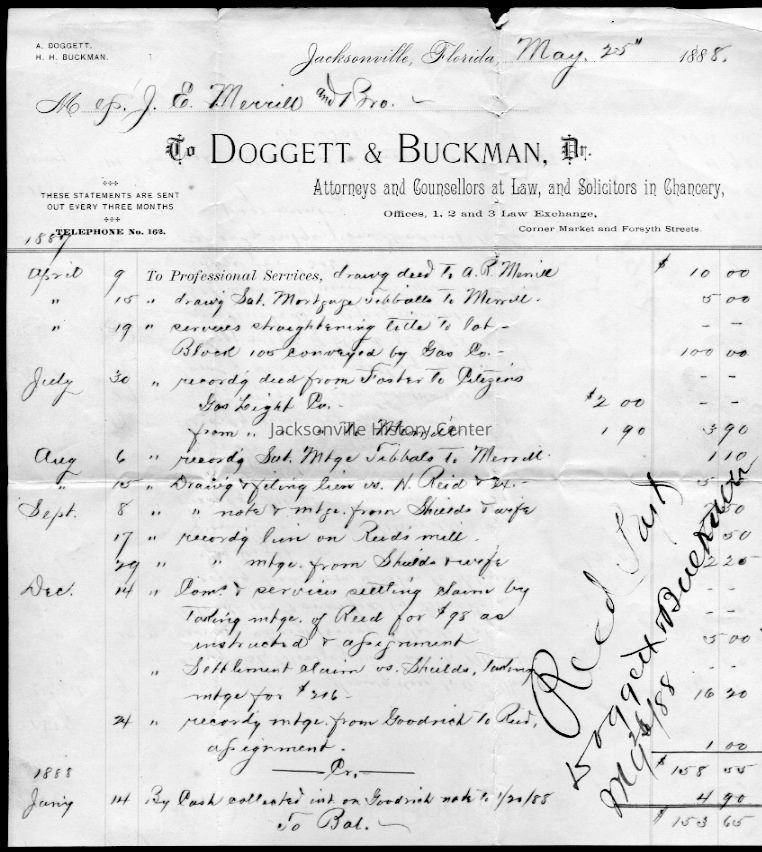 A. DOGGETT.
H. H. BUCKMAN.
Jacksonville, Florida, May. 25" 1888.
Mess. J. E. Merrill and Bro.
To DOGGETT & BUCKMAN, Dr.
Attorneys and Counsellors at Law, and Solicitors in Chancery,
THESE STATEMENTS ARE SENT
OUT EVERY THREE MONTHS
Offices, 1, 2 and 3 Law Exchange,
Corner Market and Forsyth Streets.
TELEPHONE No. 162.
1887
April 9 To Professional Services, drawg deed to A. R. Merrill $ 10 00
" 15 " drawg Sat. Mortgage Tibballs to Merrill. 5 00
" 19 " services straightening title to lot - - -
Block 100 conveyed by Gas Co. - 100 00
July 30 " recordg deed from Foster to Citizens - -
Gas Light Co. - $2 00
from " 1 90 3 90
Jacksonville History Center
Aug 6 " recordg Sat. Mtge Tibbals to Merrill. 1 10
" 15 " Drawg & filing lien vs. N. Reid &
Sept. 8 " " note & mtge. from Shields & wife 50
17 " recordg lien on Reids mill. 50
29 " " mtge. from Shields & wife 2 25
Dec. 14 " Coms. & services settling claim by - -
Taking mtge. of Reed for $98 as - -
instructed & assignment 5 00
" Settlement claim vs. Shields, Taking - -
mtge for $206 - 16 20
24 " recordg mtge. from Goodrich to Reid,
assignment. 1 00
Cr. $ 158 55
1888
Jany 14 By Cash collected int. on Goodrich note to 1/20/88 4 90
To Bal. $ 153 65
Recd Payt
Doggett & Buckman
My 26/88